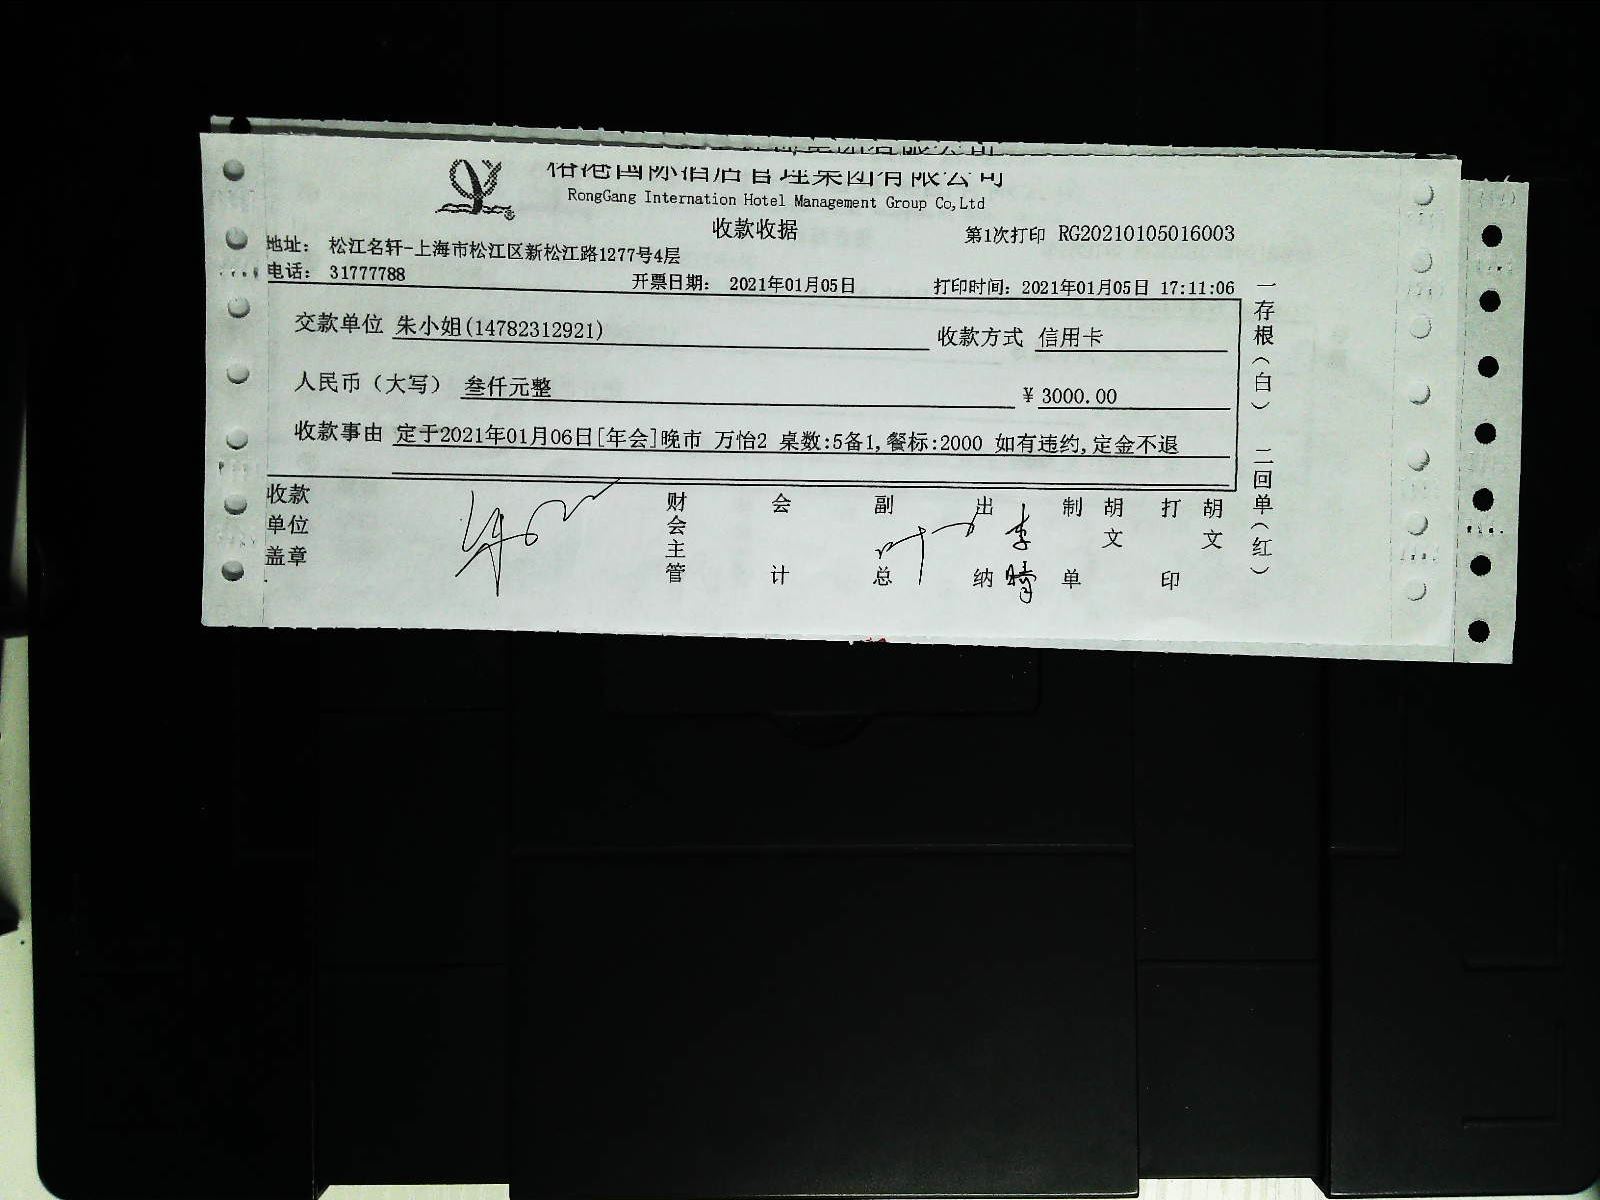 国际酒店管理集团有限公司
RongGang Internation Hotel Management Group Co,Ltd
收款收据
第1次打印 RG20210105016003
地址： 松江名轩-上海市松江区新松江路1277号4层
电话： 31777788
开票日期： 2021年01月05日
打印时间：2021年01月05日 17:11:06
交款单位 朱小姐(14782312921)
收款方式 信用卡
人民币（大写） 叁仟元整
¥ 3000.00
收款事由 定于2021年01月06日[年会]晚市 万怡2 桌数:5备1,餐标:2000 如有违约,定金不退
收款单位盖章
财会主管
会计
副总
出纳
李
制单
胡文
打印
胡文
一存根（白） 二回单（红）